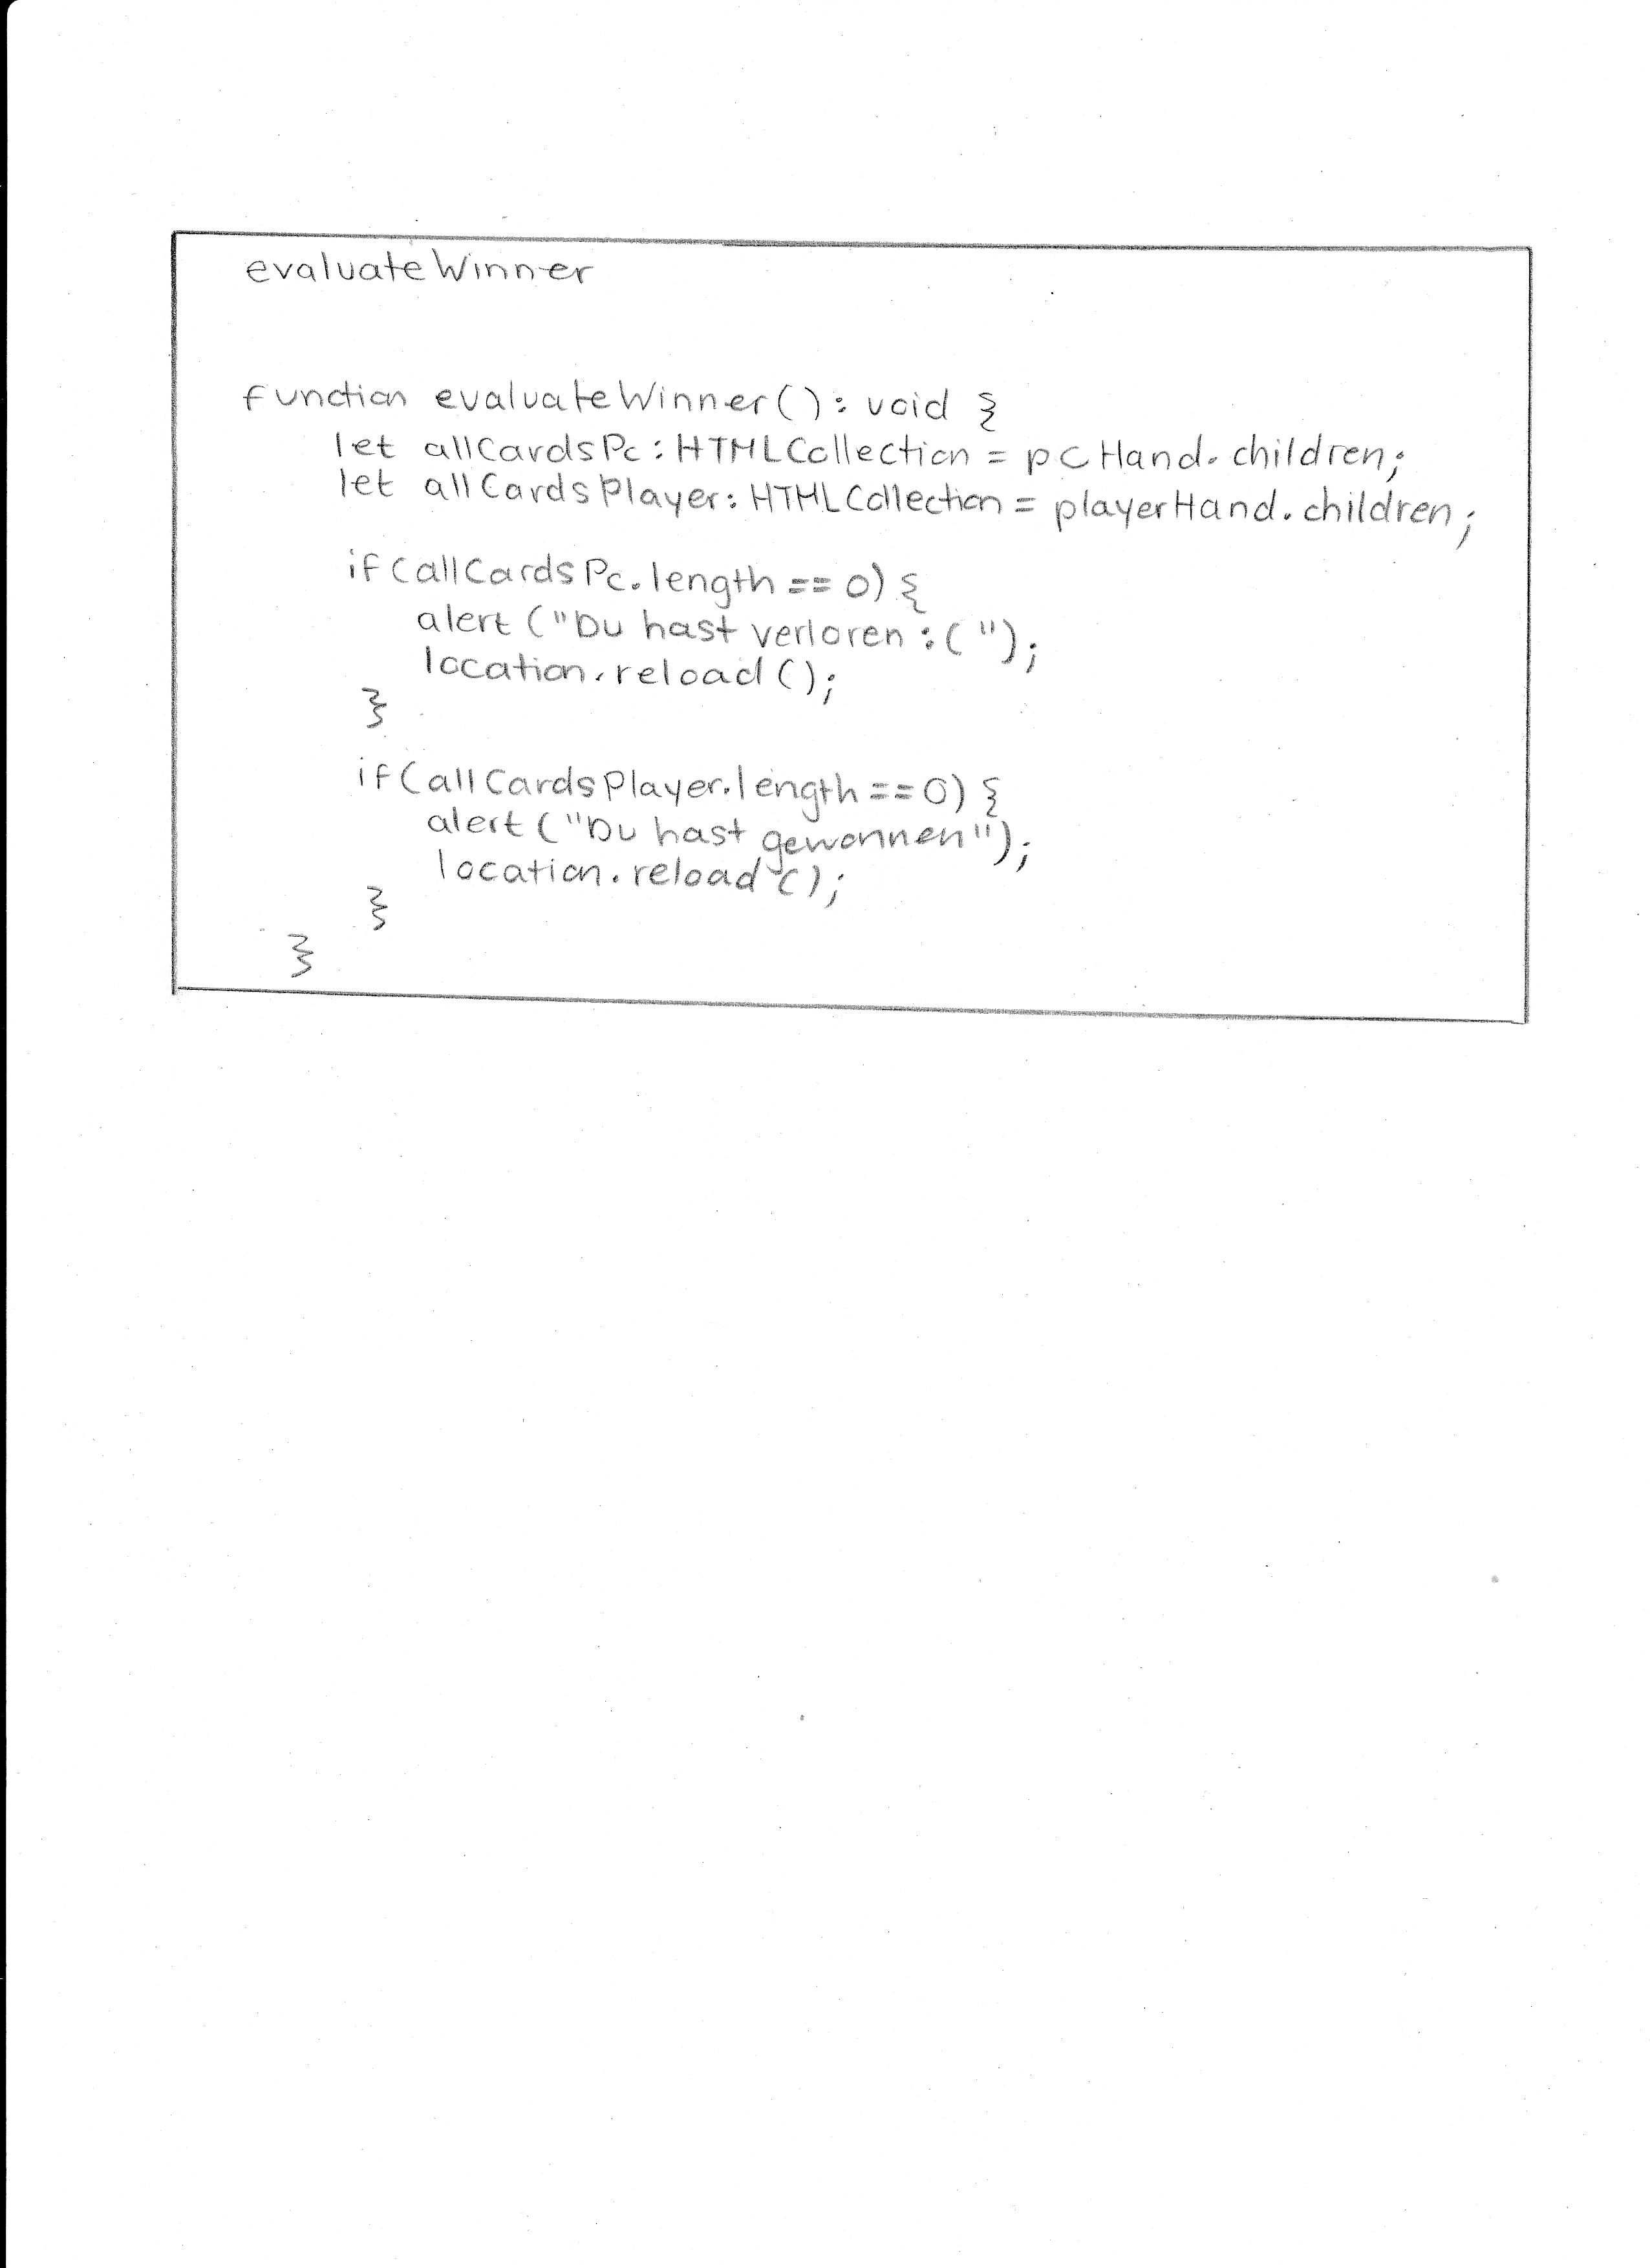 evaluateWinner
function evaluateWinner(): void {
let allCardsPc: HTMLCollection = pcHand.children;
let allCardsPlayer: HTMLCollection = playerHand.children;
if (allCardsPc.length == 0) {
alert ("Du hast verloren :( ");
location.reload();
}
if (allCardsPlayer.length == 0) {
alert ("Du hast gewonnen");
location.reload();
}
}